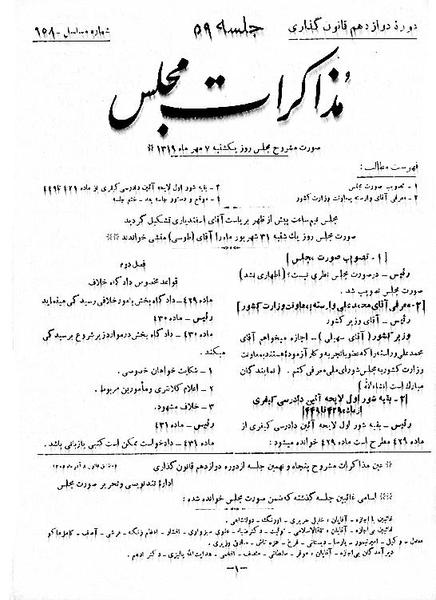 دورهٔ دوازدهم قانون گذاری
جلسه ۵۹
شماره مسلسل - ۹۵۸
مذاکرات مجلس
صورت مشروح مجلس روز یکشنبه ۷ مهر ماه ۱۳۱۹ ※
فهرست مطالب:
۱ - تصویب صورت مجلس
۲ - معرفی آقای وارسته بمعاونت وزارت کشور
۳ - بقیه شور اول لایحه آئین دادرسی کیفری از ماده ۴۲۹ تا
۴ - موقع و دستور جلسه بعد - ختم جلسه
مجلس نیم ساعت پیش از ظهر بریاست آقای اسفندیاری تشکیل گردید
صورت مجلس روز یک شنبه ۳۱ شهریور ماه را آقای (طوسی) منشی خواندند ※
[۱ - تصویب صورت مجلس]
رئیس - در صورت مجلس نظری نیست؟ (اظهاری نشد)
صورت مجلس تصویب شد.
[۲ - معرفی آقای محمد علی وارسته بمعاونت وزارت کشور]
رئیس - آقای وزیر کشور
وزیر کشور (آقای سهیلی) - اجازه میخواهم آقای
محمد علی وارسته را که عضو با تجربه و کار آزموده هستند بمعاونت
وزارت کشور بمجلس شورای ملی معرفی کنم. (نمایندگان
مبارک است انشاءالله)
[۳ - بقیه شور اول لایحه آئین دادرسی کیفری
از ماده ۴۲۹ تا
رئیس - بقیه شور اول لایحه آئین دادرسی کیفری از
ماده ۴۲۹ مطرح است ماده ۴۲۹ خوانده میشود:
فصل دوم
قواعد مخصوص دادگاه خلاف
ماده ۴۲۹ - دادگاه بخش بامور خلافی رسیدگی مینماید
رئیس - ماده ۴۳۰
ماده ۴۳۰ - دادگاه بخش در موارد زیر شروع برسیدگی
میکند.
۱ - شکایت خواهان خصوصی.
۲ - اعلام کلانتری و مأمورین مربوط.
۳ - خلاف مشهود.
رئیس - ماده ۴۳۱
ماده ۴۳۱ - دادخواست ممکن است کتبی یا زبانی باشد.
※ عین مذاکرات مشروح پنجاه و نهمین جلسه از دوره دوازدهم قانون گذاری
اداره تندنویسی و تحریر صورت مجلس
※※ اسامی غائبین جلسه گذشته که ضمن صورت مجلس خوانده شده:
- ۱ -